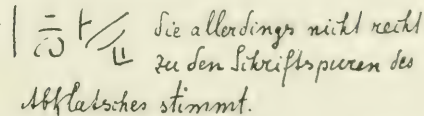 die allerdings nicht recht
zu den Schriftspuren des
Abklatsches stimmt.